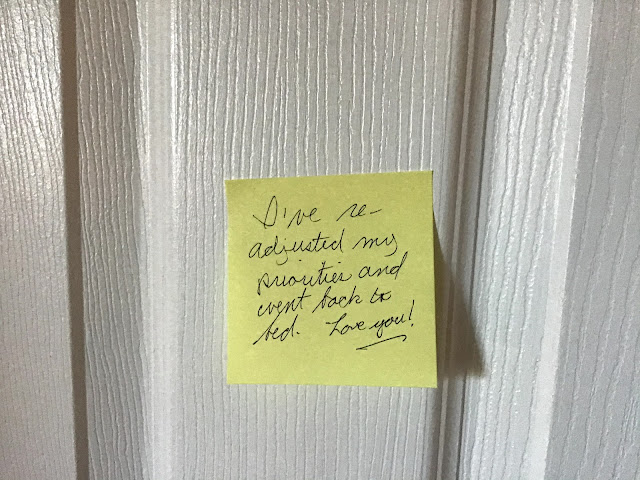 I've re-
adjusted my
priorities and
went back to
bed. Love you!